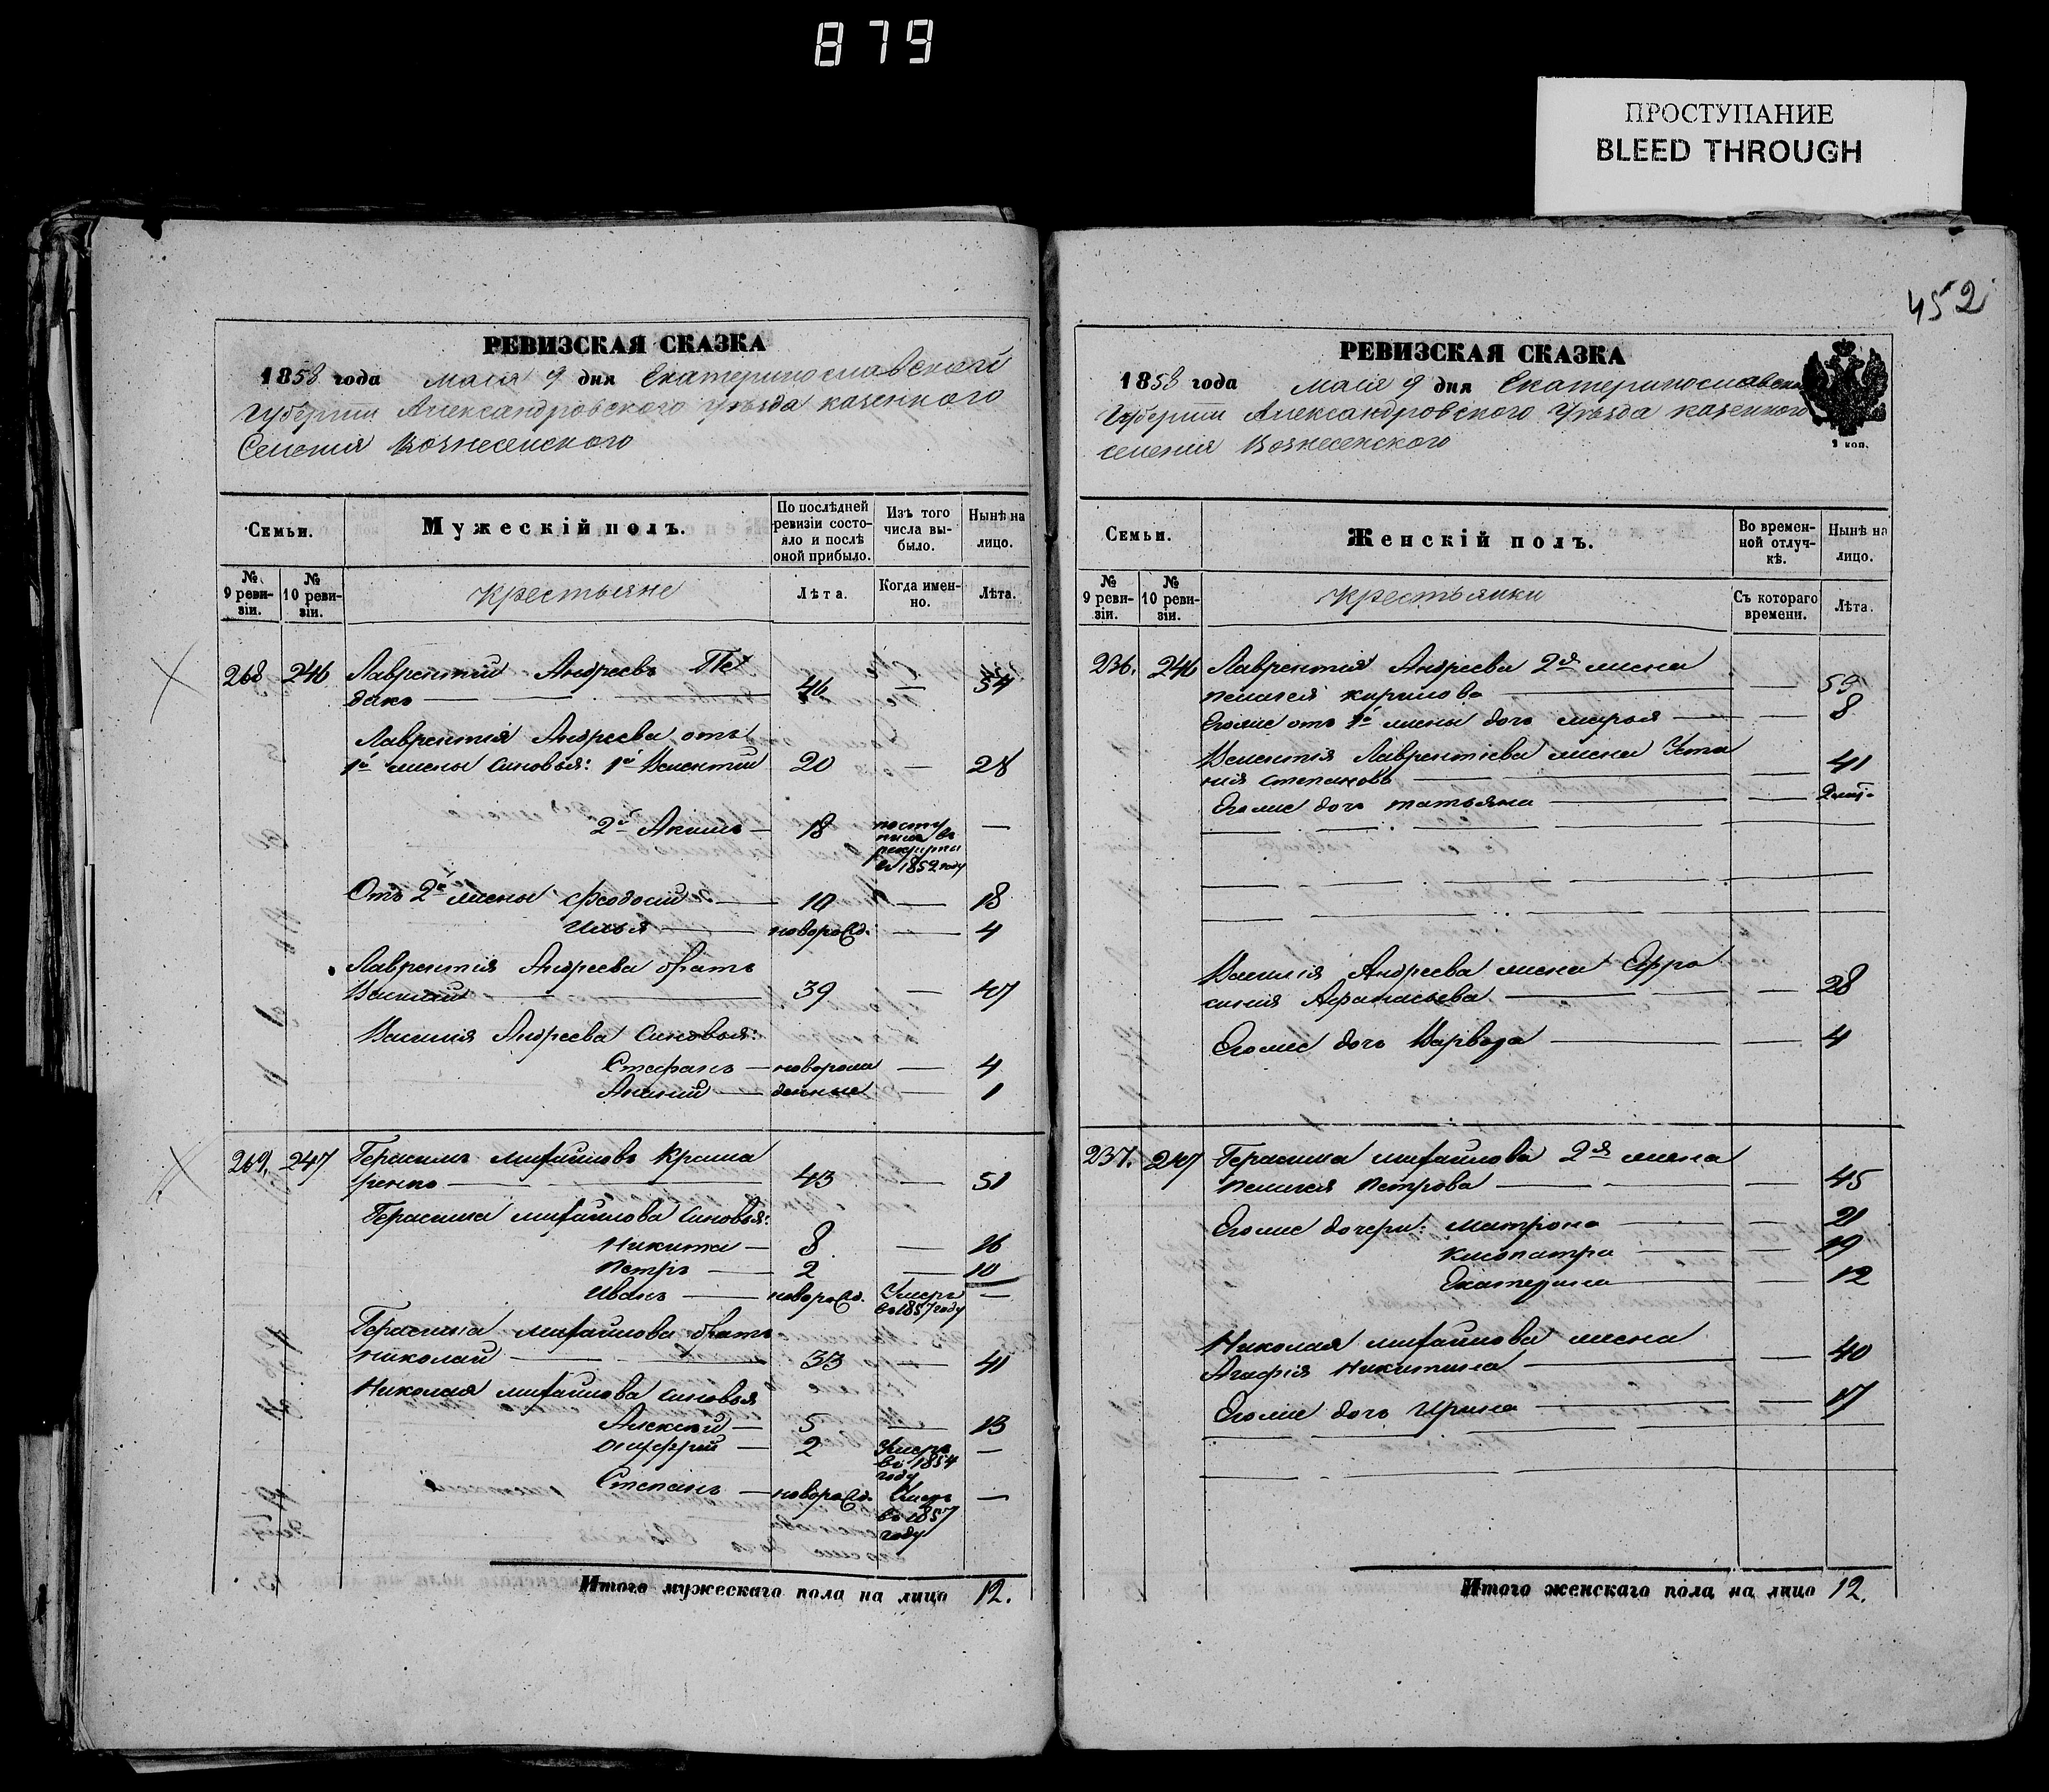 879
ПРОСТУПАНИЕ
BLEED THROUGH
452
РЕВИЗСКАЯ СКАЗКА
1858 года мaiя 9 дня Екатеринославской
Губернии Александровского Уѣзда казенного
Селения Вознесенского
Семьи.
Мужескій полъ.
По послѣдней ревизіи состояло и послѣ оной прибыло.
Изъ того числа выбыло.
Нынѣ на лицо.
№ 9 ревизіи.
№ 10 ревизіи.
крестьяне
Лѣта.
Когда именно.
Лѣта.
268 246 Лаврентий Андреевъ Пе
дако 46 — 54
Лаврентія Андреева отъ
1й жены сыновья: 1й 20 — 28
2й Акимъ — 18 — поступилъ въ рекруты въ 1852 году —
Отъ 2й жены Феодосий — 10 — 18
Илья — новорожд. — 4
Лаврентія Андреева братъ
Василий — 39 — 47
Василия Андреева сыновья:
Стефанъ — новорож — 4
Ананий — денные — 1
269. 247 Герасимъ Михайловъ Крама
ренко — 43 — 51
Герасима Михайлова сыновья:
Никита — 8 — 16
Петръ — 2 — 10
Иванъ — новорожд. Умеръ въ 1857 году —
Герасима Михайлова братъ
Николай — 33 — 41
Николая Михайлова сыновья
Алексѣй — 5 — 13
Онуфрий — 2 Умеръ въ 1854 году —
Степанъ — новорожд. Умеръ въ 1857 году —
Итого мужескаго пола на лицо 12.
РЕВИЗСКАЯ СКАЗКА
1858 года маiя 9 дня Екатеринославской
Губернии Александровского Уѣзда казенного
селения Вознесенского
2 коп.
Семьи.
Женскій полъ.
Во временной отлучкѣ.
Нынѣ на лицо.
№ 9 ревизіи.
№ 10 ревизіи.
крестьянки
Съ котораго времени.
Лѣта.
236. 246 Лаврентія Андреева 2я жена
Пелагея Кирилова — 53
Егоже отъ 1й жены дочь Марья — 8
Лаврентіева жена Уста
ния Степановъ — 41
Егоже дочь Татьяна —
Василія Андреева жена Афро
синия Афанасьева — 28
Егоже дочь Варвара — 4
237. 247 Герасима Михайлова 2я жена
Пелагея Петрова — 45
Егоже дочери: Матрона — 21
Клеопатра — 19
Екатерина — 12
Николая Михайлова жена
Агафія Никитина — 40
Егоже дочь Ирина — 17
Итого женскаго пола на лицо 12.